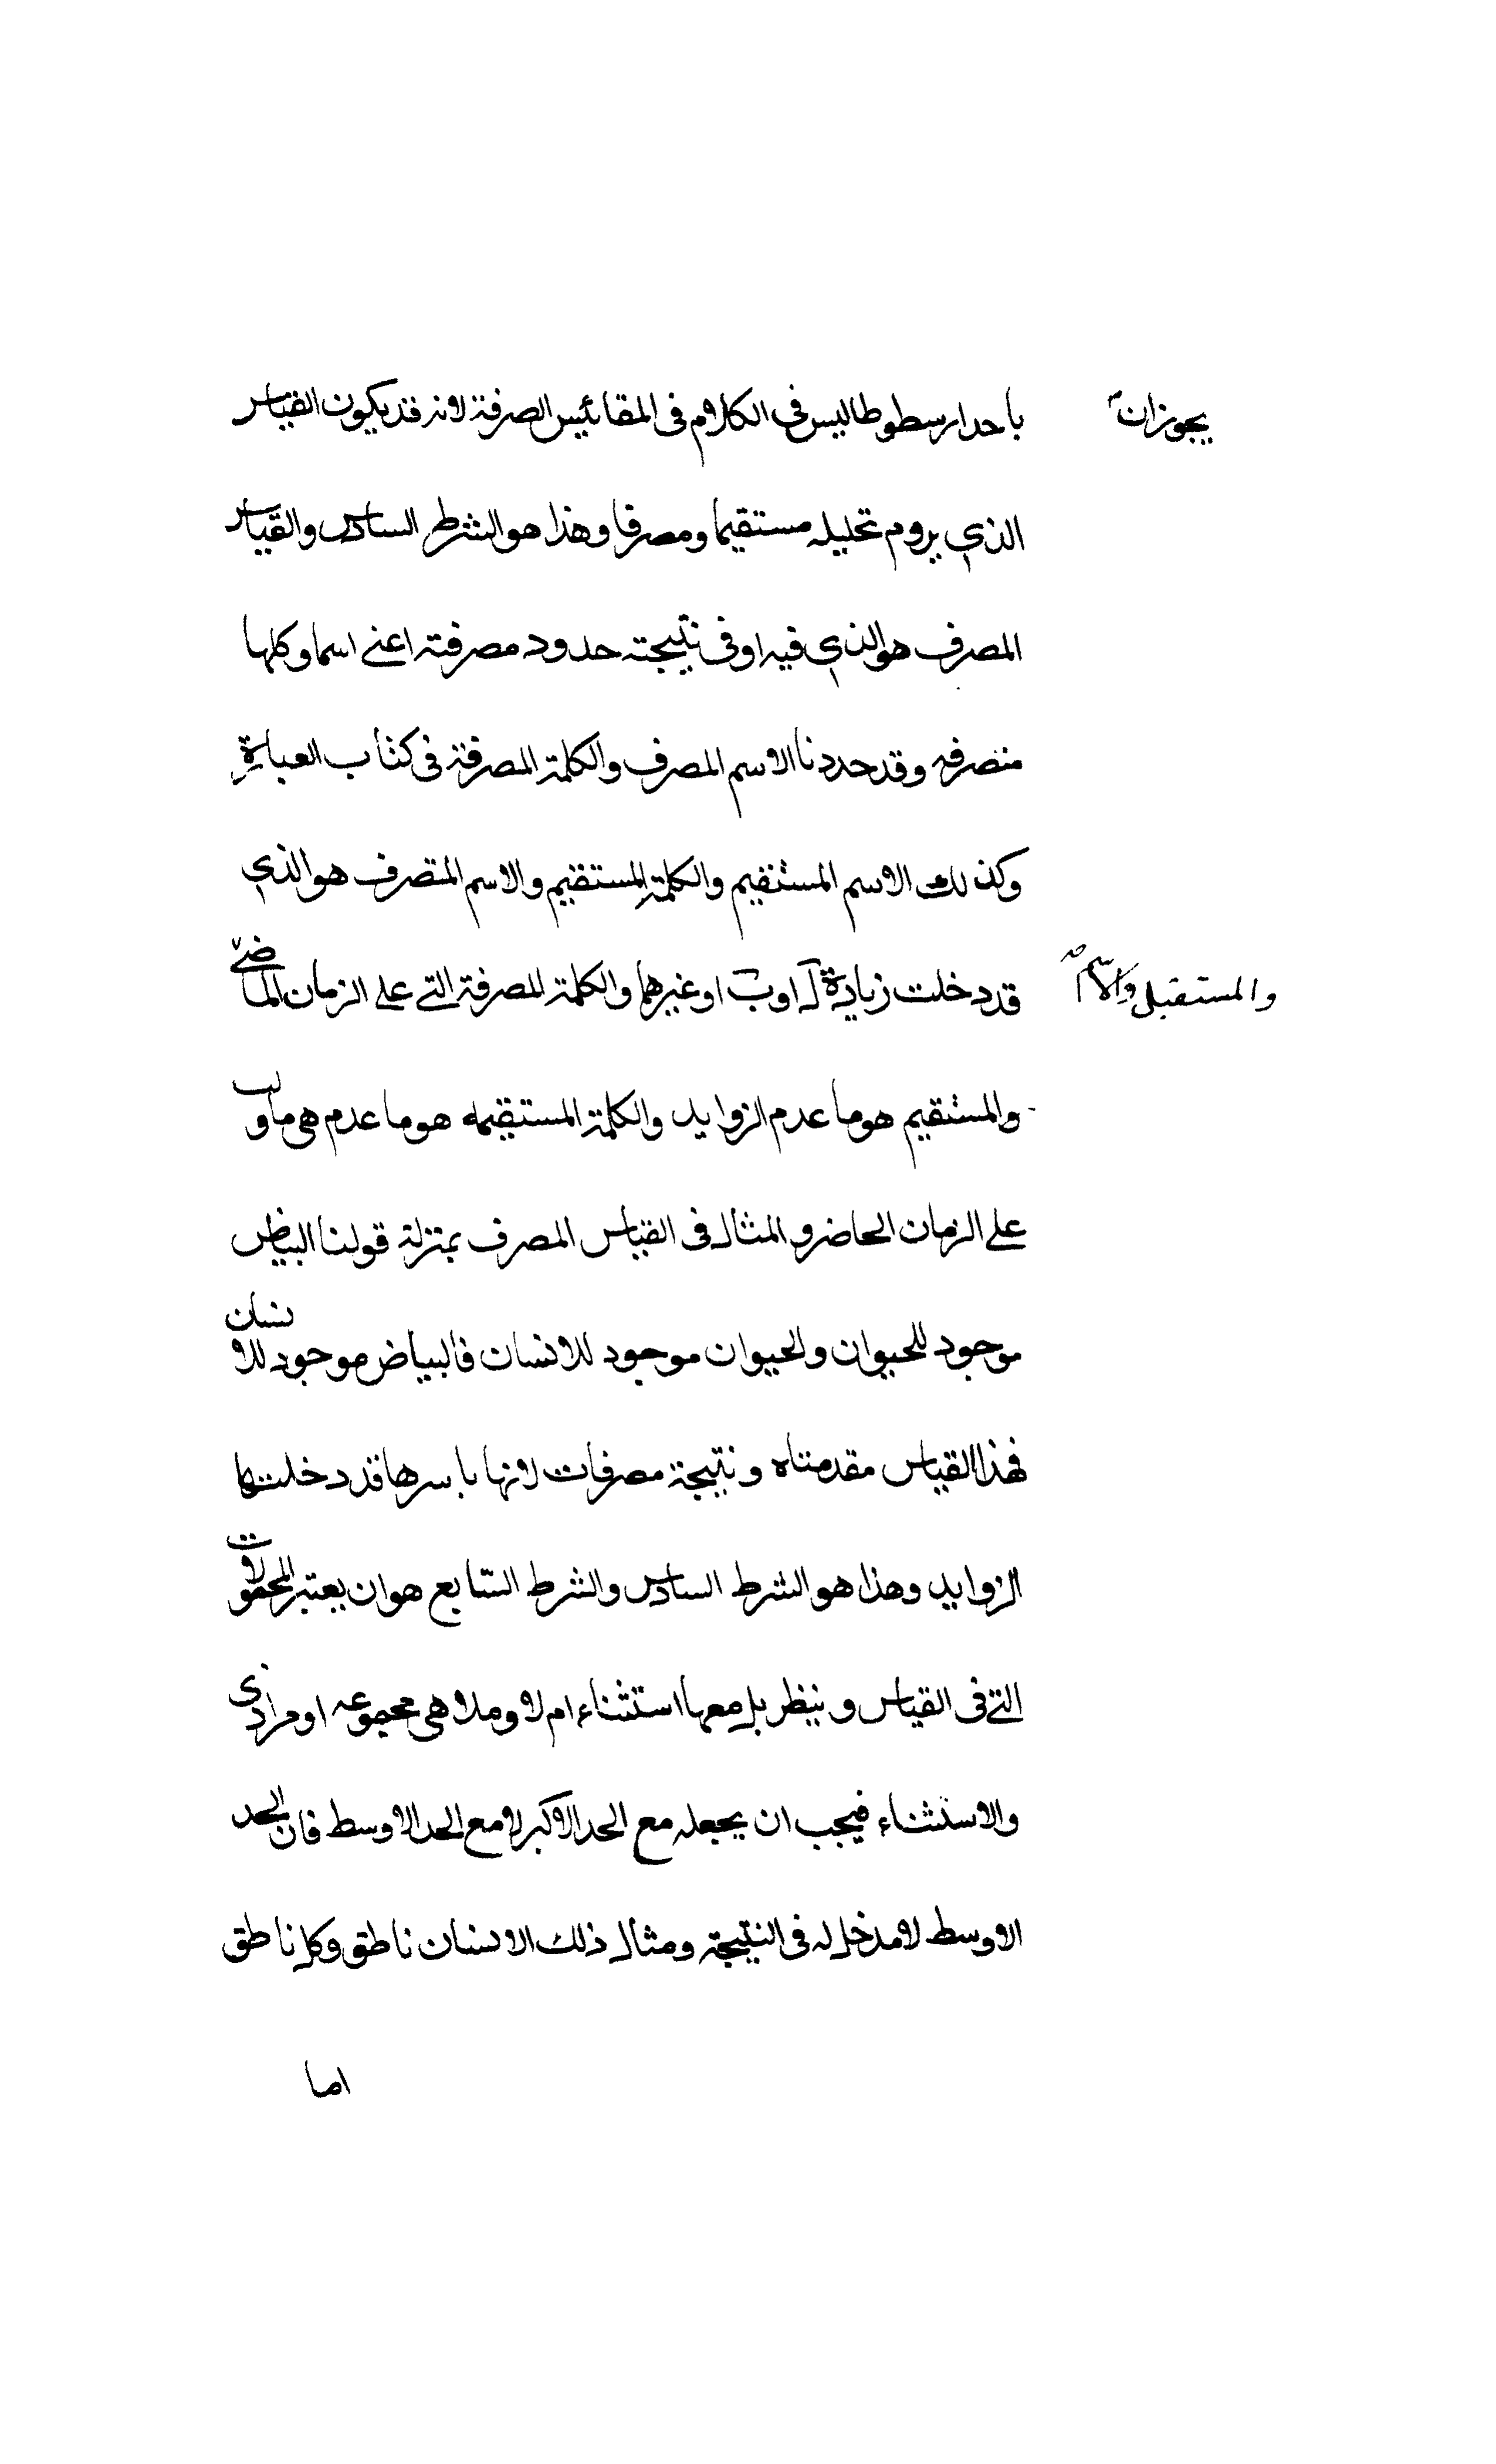 ياحد ارسطوطاليس فى الكلام فى المقائيس الصرفة لانه قد يكون القياس
يجوز ان
الذي يروم تحليله مستقيما ومصرفا وهذا هو الشرط السادس والقياس
المصرف هو الذي فيه او فى نتيجته حدود مصرفته اعنے اسما وكلها
منصرفه وقد حددنا الاسم المصرف والكلمة المصرفة فى كتاب العبارة
وكذلك الاسم المستقيم والكلمة المستقيم والاسم المتصرف هو الذي
قد دخلت زيادة لَـ او بَ او غيرهما والكلمة المصرفة التے علے الزمان الماضے
والمستقبل والاسم
والمستقيم هو ما عدم الزوايد والكلمة المستقيمه هو ما عدم هى ما
علے الزمان الحاضر والمثال فى القياس المصرف بمنزلة قولنا البياض
موجود للحيوان والحيوان موجود للانسان فالبياض موجود للانسان
فهذا القياس مقدمتاه ونتيجة مصرفات لانها باسرها قد دخلت
الزوايد وهذا هو الشرط السادس والشرط السّابع هو ان يعتبر المحمولات
التے فى القياس وينظر بل معها استثناء ام لا و هى مجموعه او
والاستثناء فيجب ان يجعله مع الحد الاكبر لا مع الحد الاوسط فان الحد
الاوسط لا مدخل له فى النتيجة ومثال ذلك الانسان ناطق وكل ناطق
اما